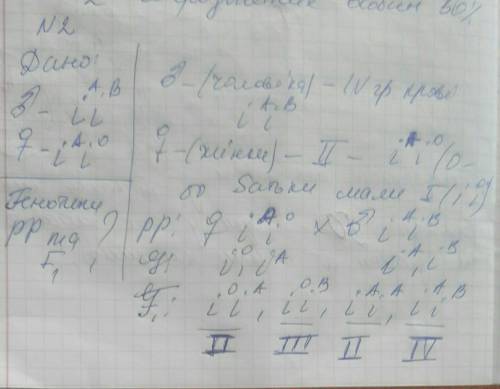 2 особин 50%
N2
Дано:
♂ - i^A i^B
♀ - i^A i^O
Генотипи
PP
F₁ - ?
♂ - (чоловіка) - IV гр крові
i^A i^B
♀ - (жінки) - II - i^A i^O (o -
бо батьки мали I (i^O i^O)
PP: ♀ i^A i^O x ♂ i^A i^B
g: i^O, i^A i^A, i^B
F₁: i^O i^A, i^O i^B, i^A i^A, i^A i^B
II III II IV